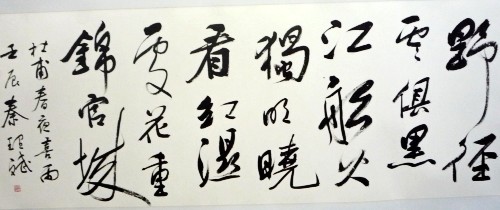 野徑
雲俱黑
江船火
獨明曉
看紅濕
處花重
錦官城
杜甫春夜喜雨
壬辰秦